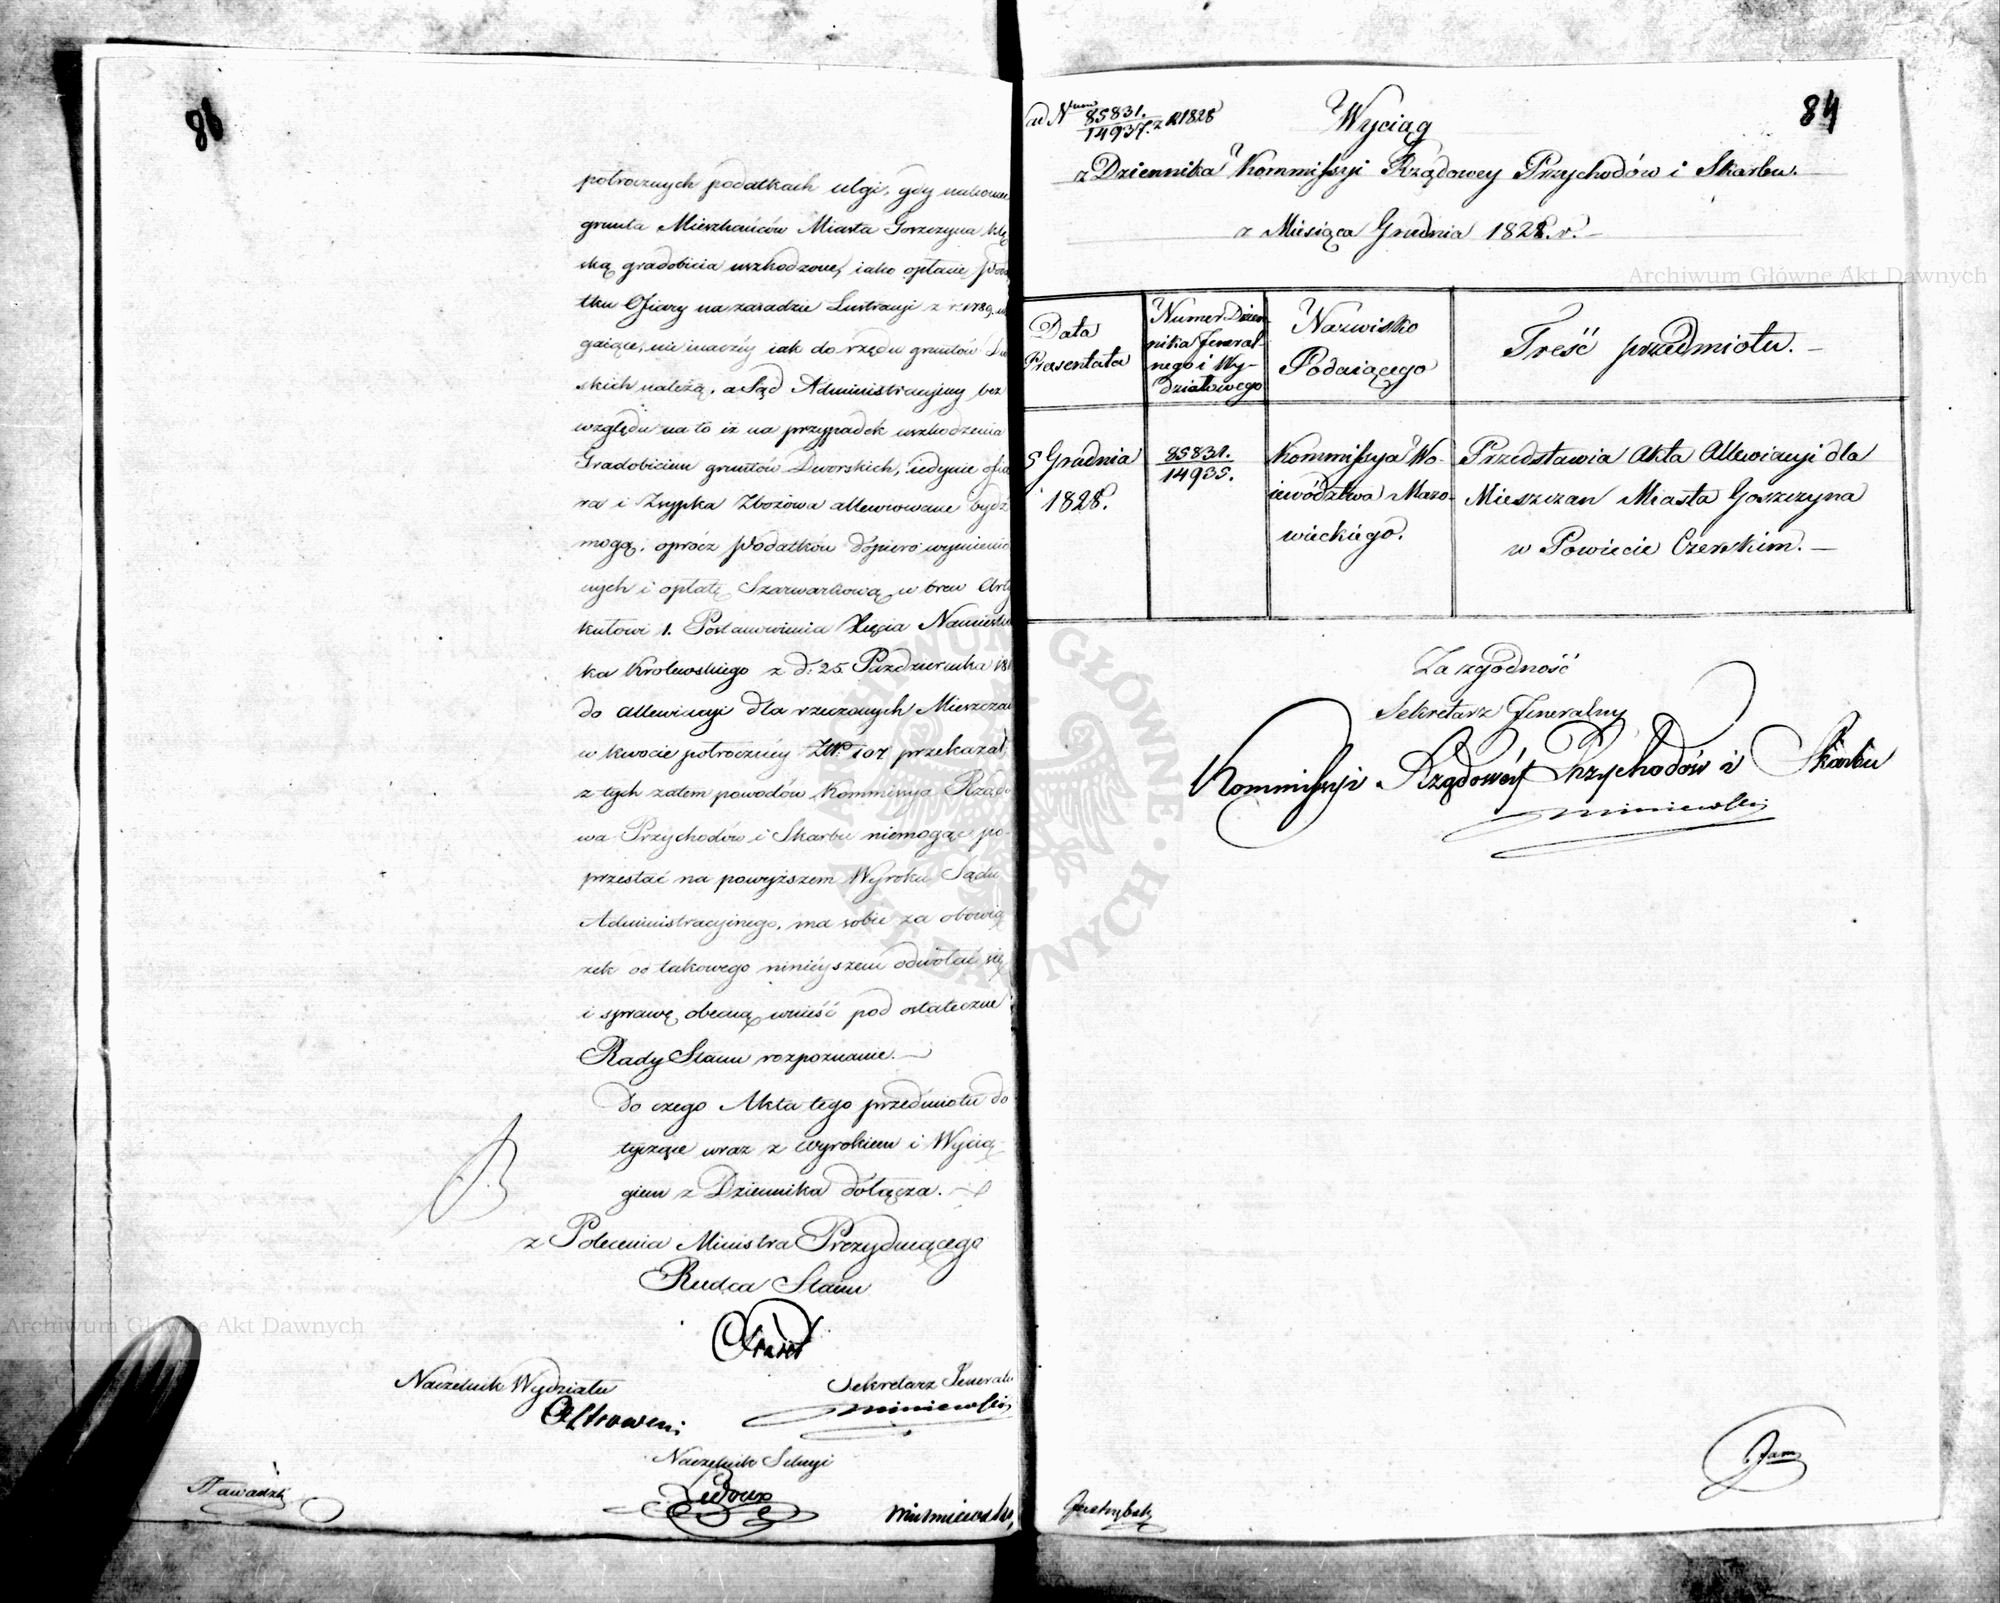 86
potrocznych podatkach ulgi, gdy
grunta Mieszkańców Miasta Goszczyna klę
ską gradobicia uszkodzone, iako opłacie Poda
tku Ofiary na zasadzie Lustracyi z r. 1789 ule
gaiące, nie inaczéy iak do rzędu gruntów Dwo
skich należą, a Sąd Administracyiny bez
względu na to iż na przypadek uszkodzenia
Gradobiciem gruntów Dworskich, iedynie ofia
ra i Zsypka Zbożowa allewiowane bydź
mogą, oprócz Podatków dopiero wymienio
nych i opłatę Szarwarkową w brew Arty
kułowi 1. Postanowienia Xięcia Namiestni
ka Królewskiego z d: 25 Października 181
do allewiacyi dla rzeczonych Mieszczan
w kwocie potroczney Złp. 107 przekazał,
z tych zatem powodów Kommissya Rządo
wa Przychodów i Skarbu niemogąc po
przestać na powyższem Wyroku Sądu
Administracyinego, ma sobie za obowią
zek od takowego ninieyszem odwołać się
i sprawę obecną wnieść pod ostateczne
Rady Stanu rozpoznanie. —
Do czego Akta tego przedmiotu do
tyczące wraz z wyrokiem i Wycią
giem z Dziennika dołącza. —
z Polecenia Ministra Prezyduiącego
Radca Stanu
Naczelnik Wydziału
Sekretarz Generaln
Naczelnik Sekcyi
Ledoux
ad Nrum 85831./14937. z R 1828
84
Wyciąg
z Dziennika Kommissyi Rządowey Przychodów i Skarbu.
z Miesiąca Grudnia 1828. r. —
Data Praesentata
Numer Dzien-
nika General-
nego i Wy-
działowego
Nazwisko
Podaiącego
Treść przedmiotu. —
5 Grudnia
1828.
85831.
14935.
Kommissya Wo-
iewództwa Mazo-
wieckiego.
Przedstawia Akta Allewiacyi dla
Mieszczan Miasta Goszczyna
w Powiecie Czerskim. —
Za zgodność
Sekretarz Generalny
Kommissyi Rządowéy Przychodów i Skarbu
Archiwum Główne Akt Dawnych
Archiwum Główne Akt Dawnych
ARCHIWUM GŁÓWNE AKT DAWNYCH